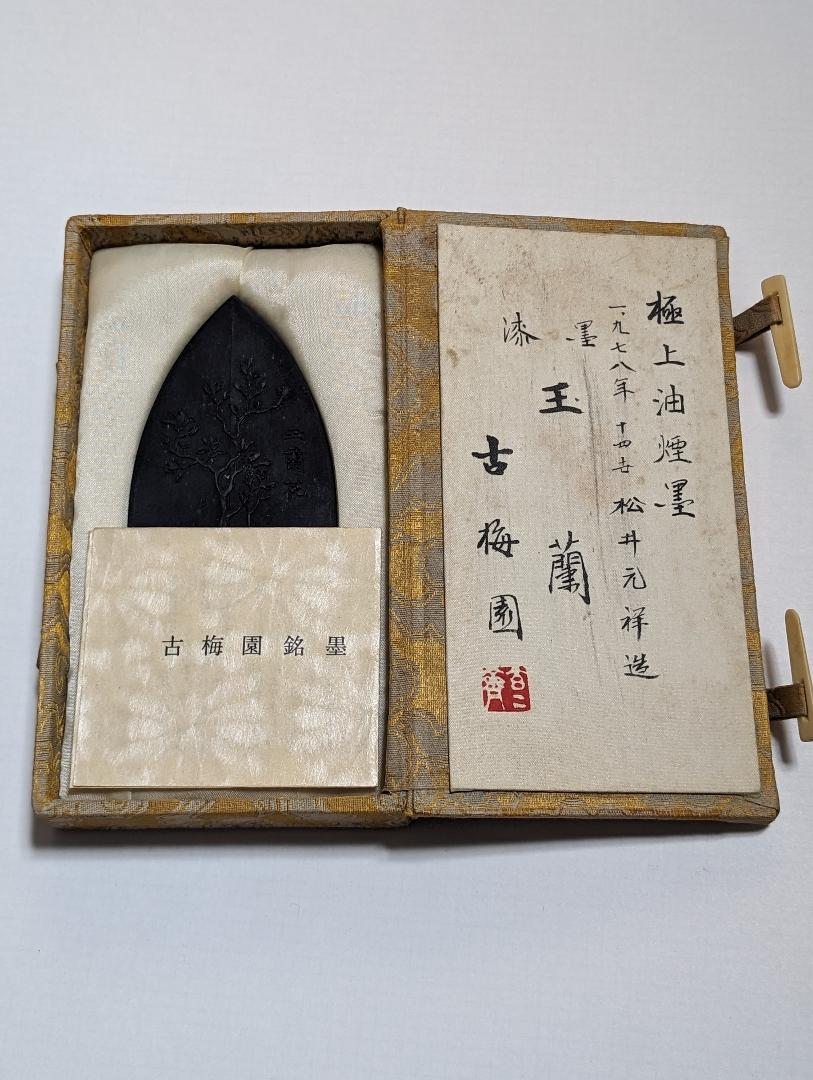 玉蘭花
古梅園銘墨
極上油煙墨
一九七八年 十四世 松井元祥造
漆墨
玉蘭
古梅園